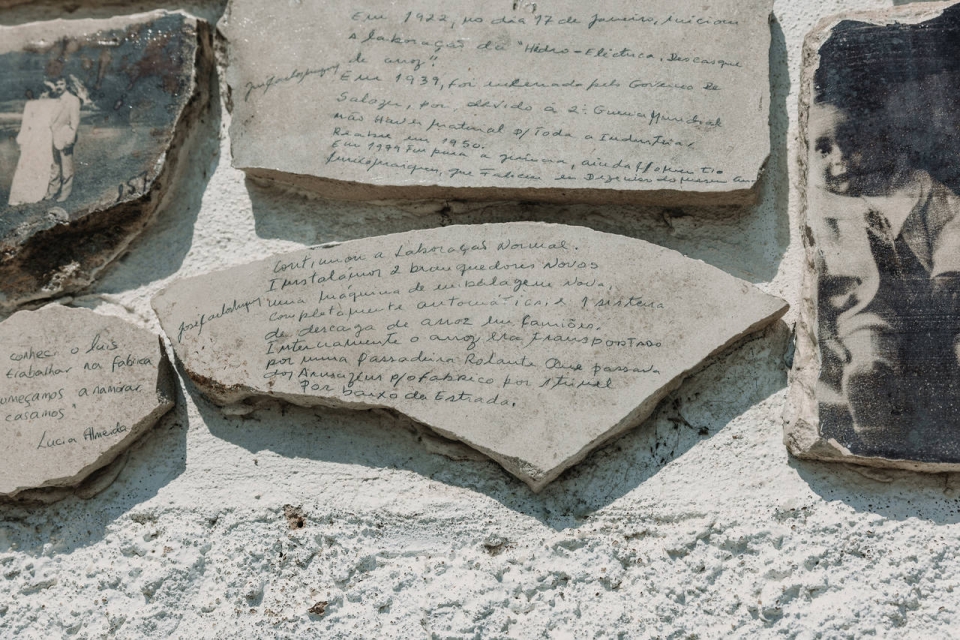 Em 1922, no dia 17 de Janeiro, iniciou
A laboração da "Hidro-Eléctrica, Descasque
de arroz".
Em 1939, foi encerrada pelo Governo de
Salazar, por devido à 2ª Guerra Mundial
não Haver material p/ Toda a Indústria.
Reabre em 1950.
Em 1979 ainda
que
Continuou a Laboração Normal.
Instalámos 2 branqueadores Novos
uma máquina de embalagem nova,
completamente automática, e 1 sistema
de descarga de arroz em Camiões.
Internamente o arroz era transportado
por uma Passadeira Rolante Que passava
dos Armazéns p/o fabrico por Túnel
Por baixo da Estrada.
conheci o Luís
trabalhar na fábrica
começamos a namorar
casamos.
Lucia Almeida